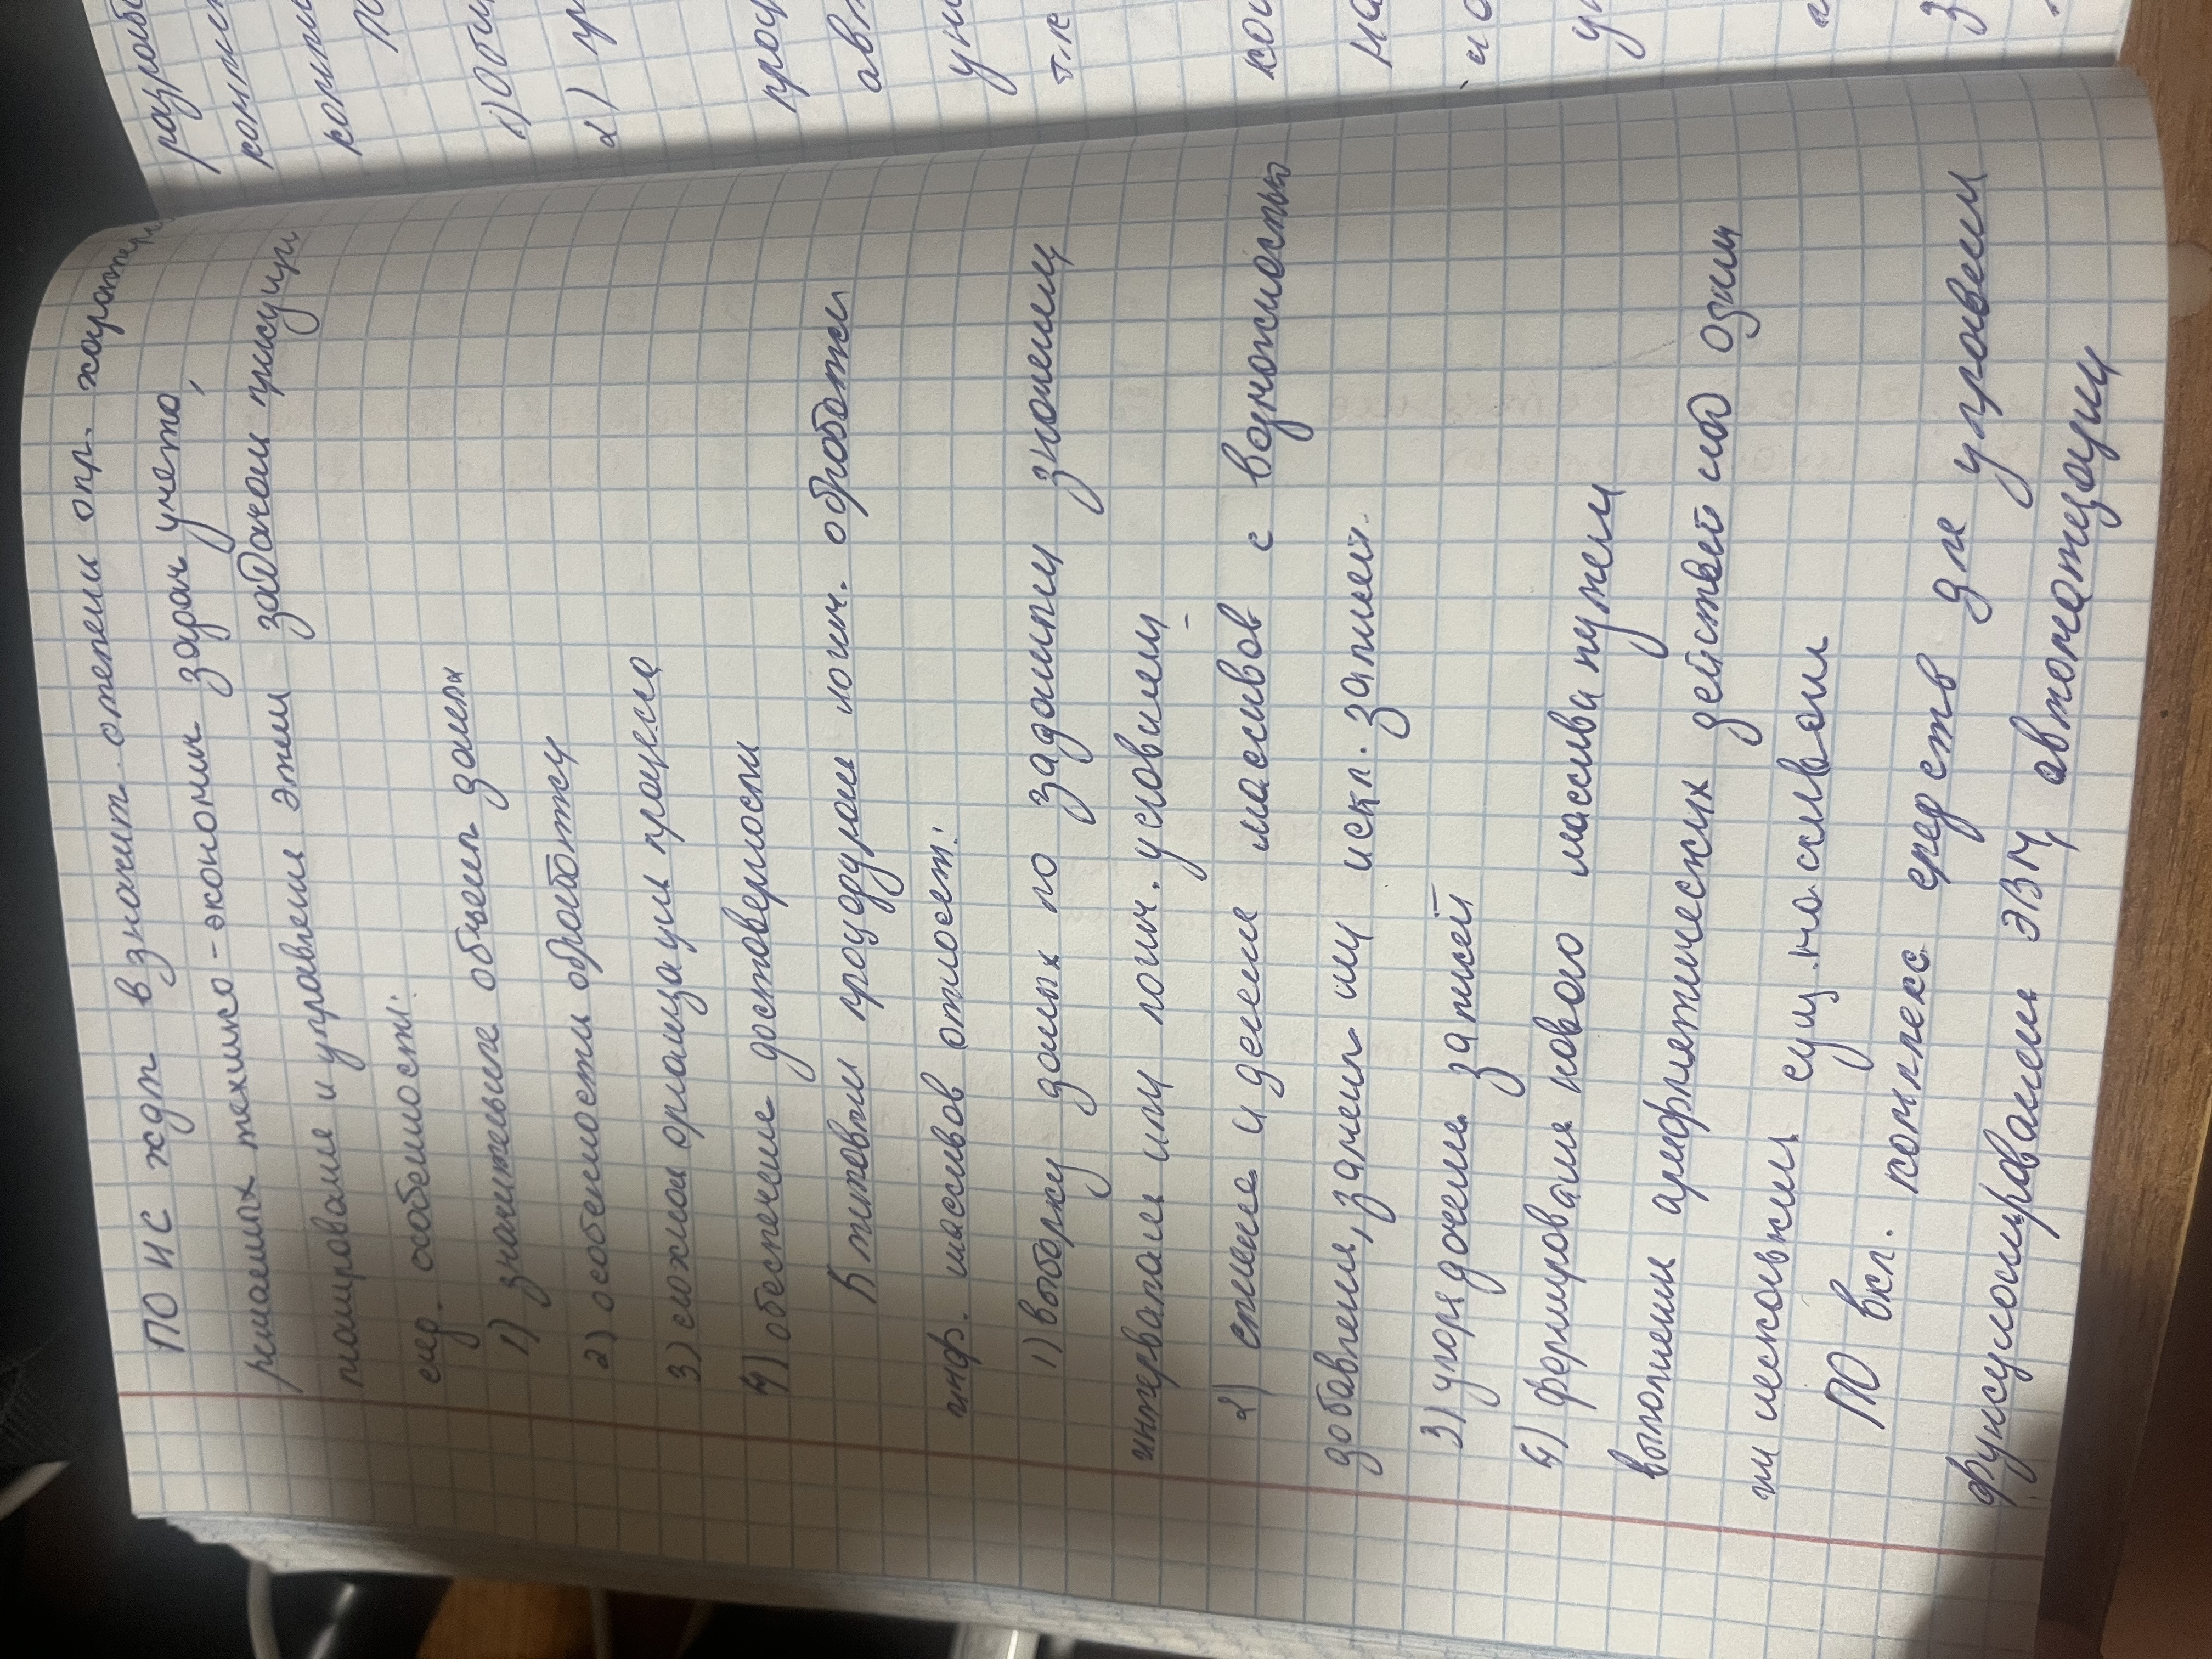 ПО ИС ждт в значит. степени опр. характером
решаемых технико-экономич задач учета,
планирование и управление этим задачам присущи
след. особенности:
1) значительные объемы данных
2) особенности обработки
3) сложная организация процесса
4) обеспечение достоверности
К типовым процедурам логич. обработки
инф. массивов относят:
1) выборку данных по заданному значению
интервалам или логич. условиям
2) слияние и деление массивов с возможностью
добавления, замены или искл. записей.
3) упорядочение записей
4) формирование нового массива путем
выполнения арифметических действий над одним
или несколькими сущ. массивами
ПО вкл. комплекс средств для управления
функционирования ЭВМ, автоматизации
разраб
компле
компл
по
1) Опи
2) пр
прог
авт
уни
т.к
ком
на
и о
уп